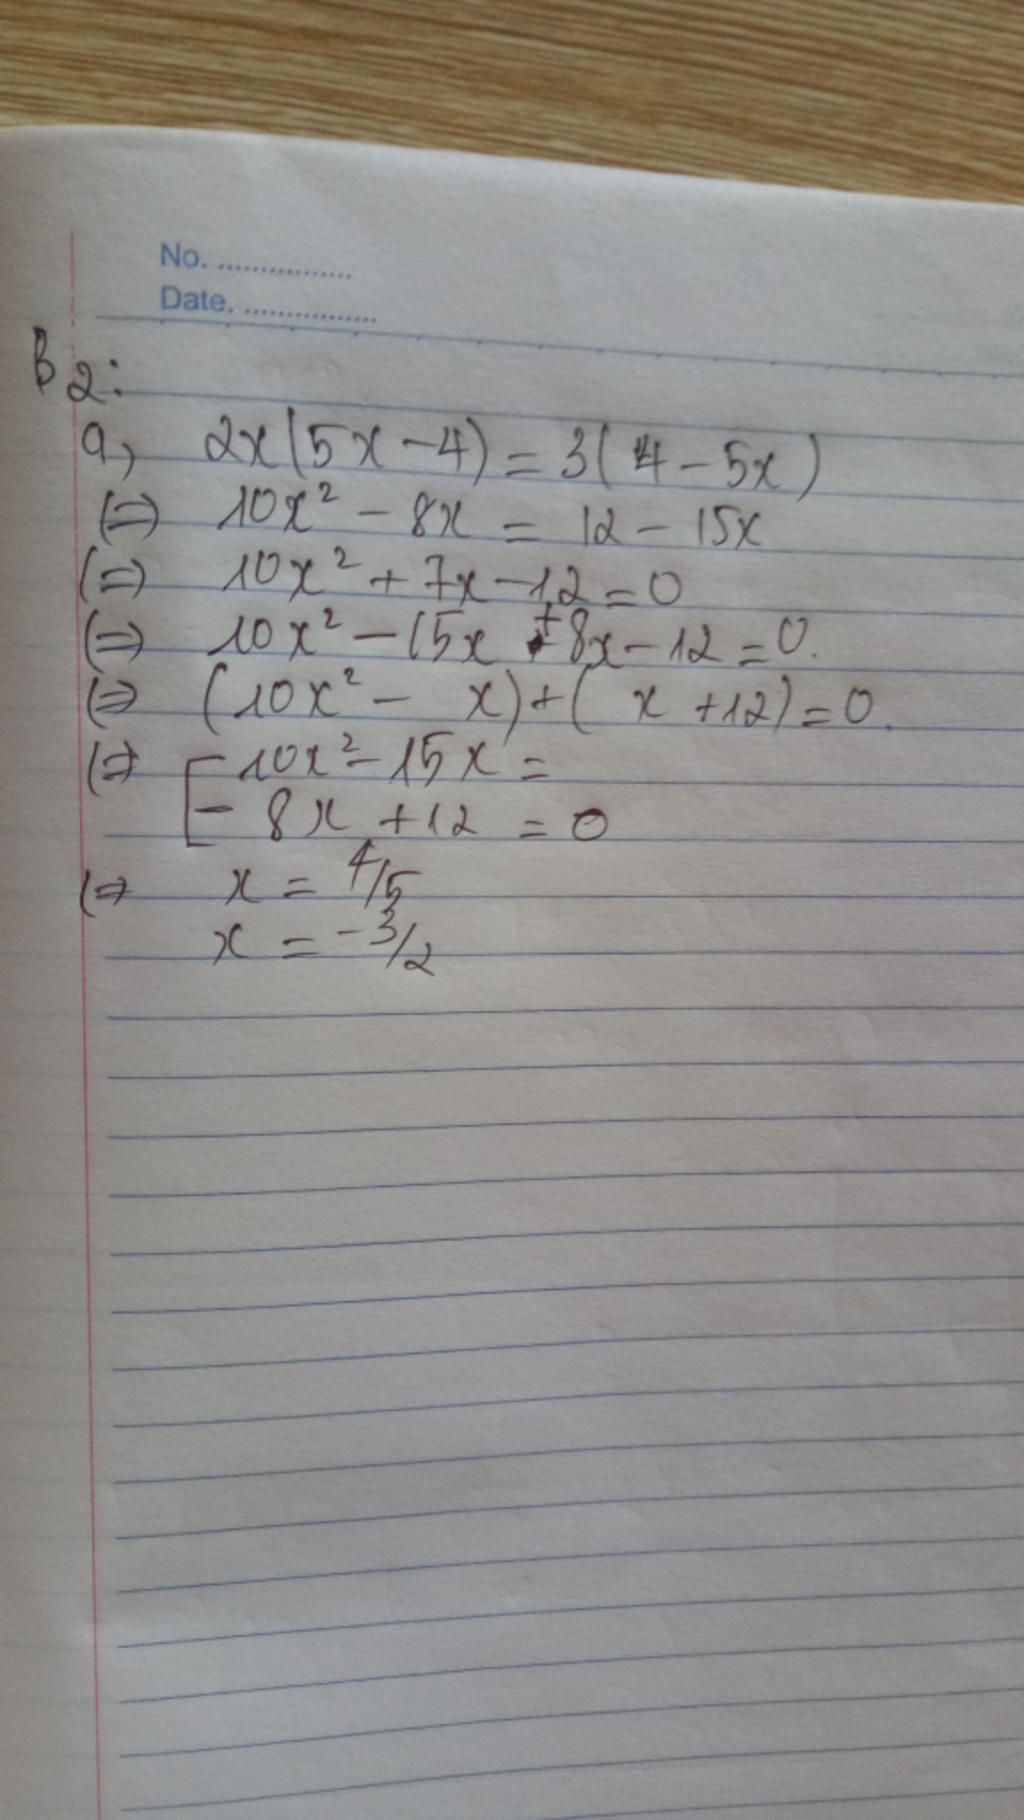 No. ................
Date. ................
B2:
a, 2x(5x - 4) = 3(4 - 5x)
(=) 10x² - 8x = 12 - 15x
(=) 10x² + 7x - 12 = 0
(=) 10x² - 15x + 8x - 12 = 0.
(=) (10x² - x) + ( x + 12) = 0.
(=) [ - 10x² - 15x =
- 8x + 12 = 0
(=) x = 4/5
x = -3/2